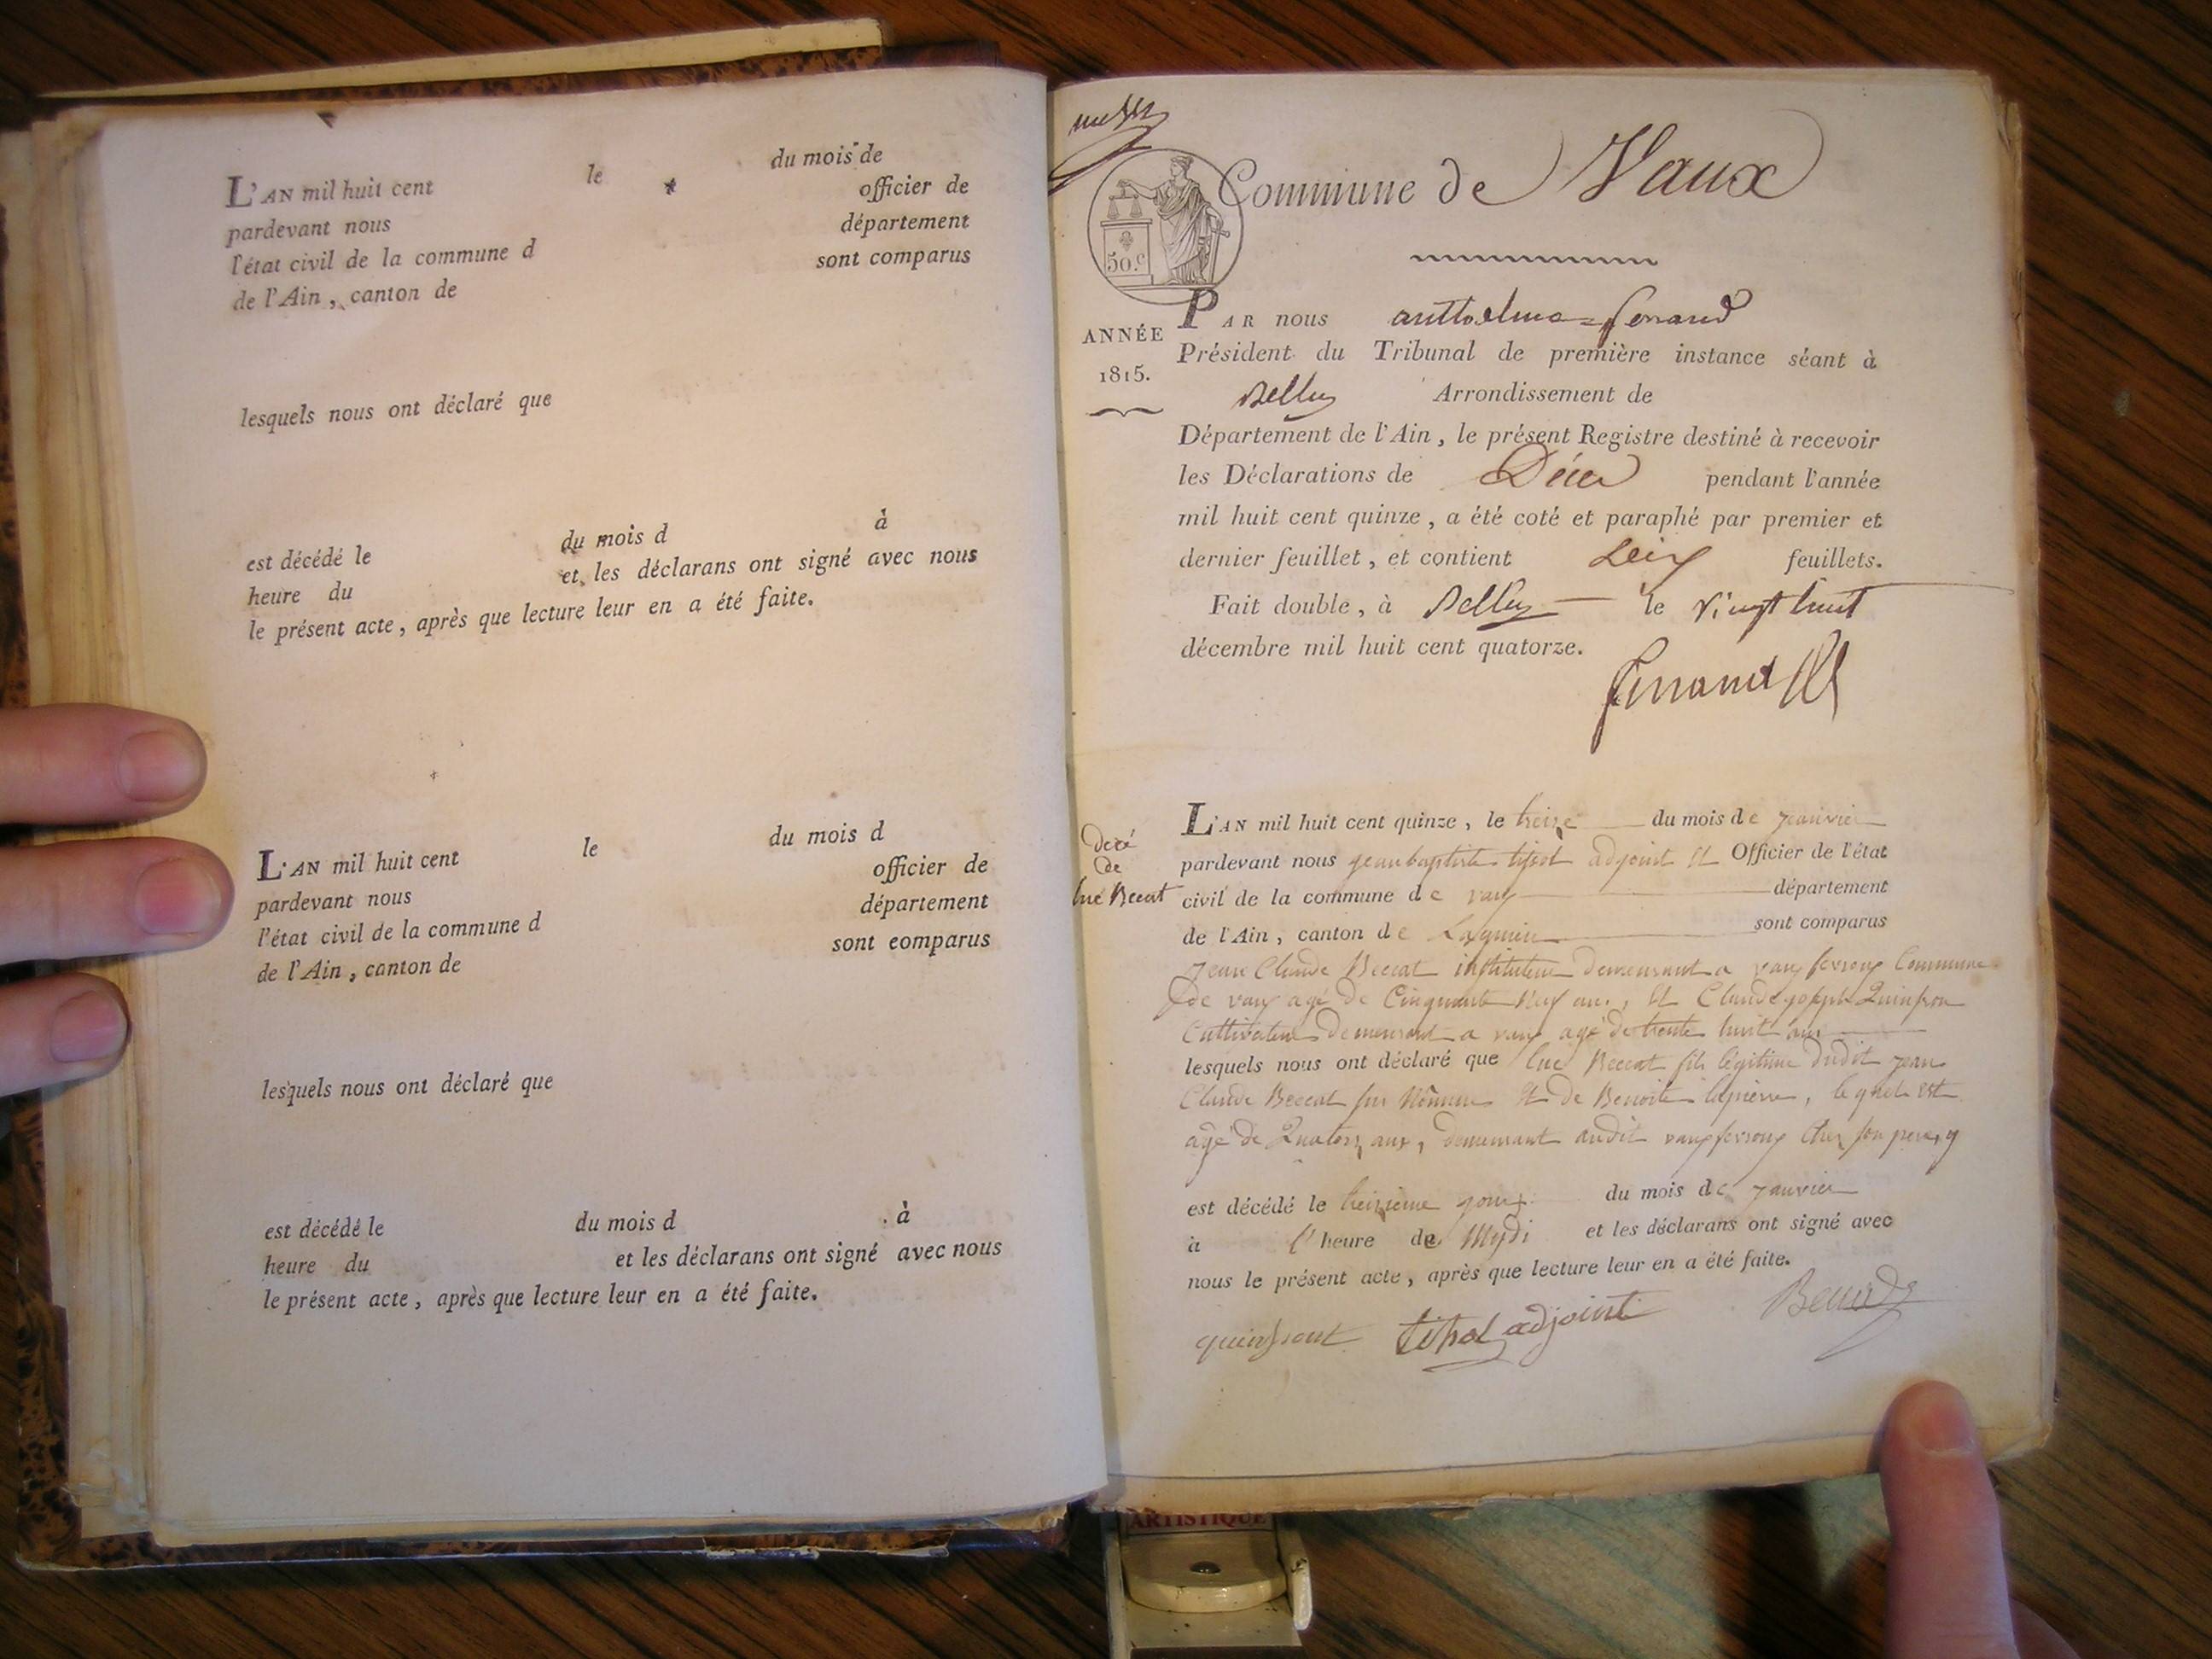 L'AN mil huit cent le du mois de
pardevant nous officier de
l'état civil de la commune d département
de l'Ain, canton de sont comparus
lesquels nous ont déclaré que
est décédé le du mois d à
heure du et les déclarans ont signé avec nous
le présent acte, après que lecture leur en a été faite.
L'AN mil huit cent le du mois d
pardevant nous officier de
l'état civil de la commune d département
de l'Ain, canton de sont eomparus
lesquels nous ont déclaré que
est décédé le du mois d à
heure du et les déclarans ont signé avec nous
le présent acte, après que lecture leur en a été faite.
Commune de Vaux
50.c
ANNÉE
1815.
PAR nous anthelme ferrand
Président du Tribunal de première instance séant à
Belley Arrondissement de
Département de l'Ain, le présent Registre destiné à recevoir
les Déclarations de Décès pendant l'année
mil huit cent quinze, a été coté et paraphé par premier et
dernier feuillet, et contient feuillets.
Fait double, à Belley le vingt huit
décembre mil huit cent quatorze.
ferrand
decé
de
luc Beccat
L'AN mil huit cent quinze, le treize du mois de janvier
pardevant nous jean baptiste tissot adjoint et Officier de l'état
civil de la commune de vaux département
de l'Ain, canton de Lagnieu sont comparus
jean Claude Beccat instituteur demeurant a vaux fevroux Commune
de vaux agé de Cinquante neuf ans, et Claude joseph Quinson
Cultivateur demeurant a vaux agé de trente huit ans
lesquels nous ont déclaré que luc Beccat fils légitime dudit jean
Claude Beccat et de Benoite lapierre, lequel est
agé de Quatorz ans, demeurant audit vaux fevroux chez son pere, y
est décédé le treizieme jour du mois de janvier
à l'heure de Mydi et les déclarans ont signé avec
nous le présent acte, après que lecture leur en a été faite.
quinsont tissot adjoint
ARTISTIQUE